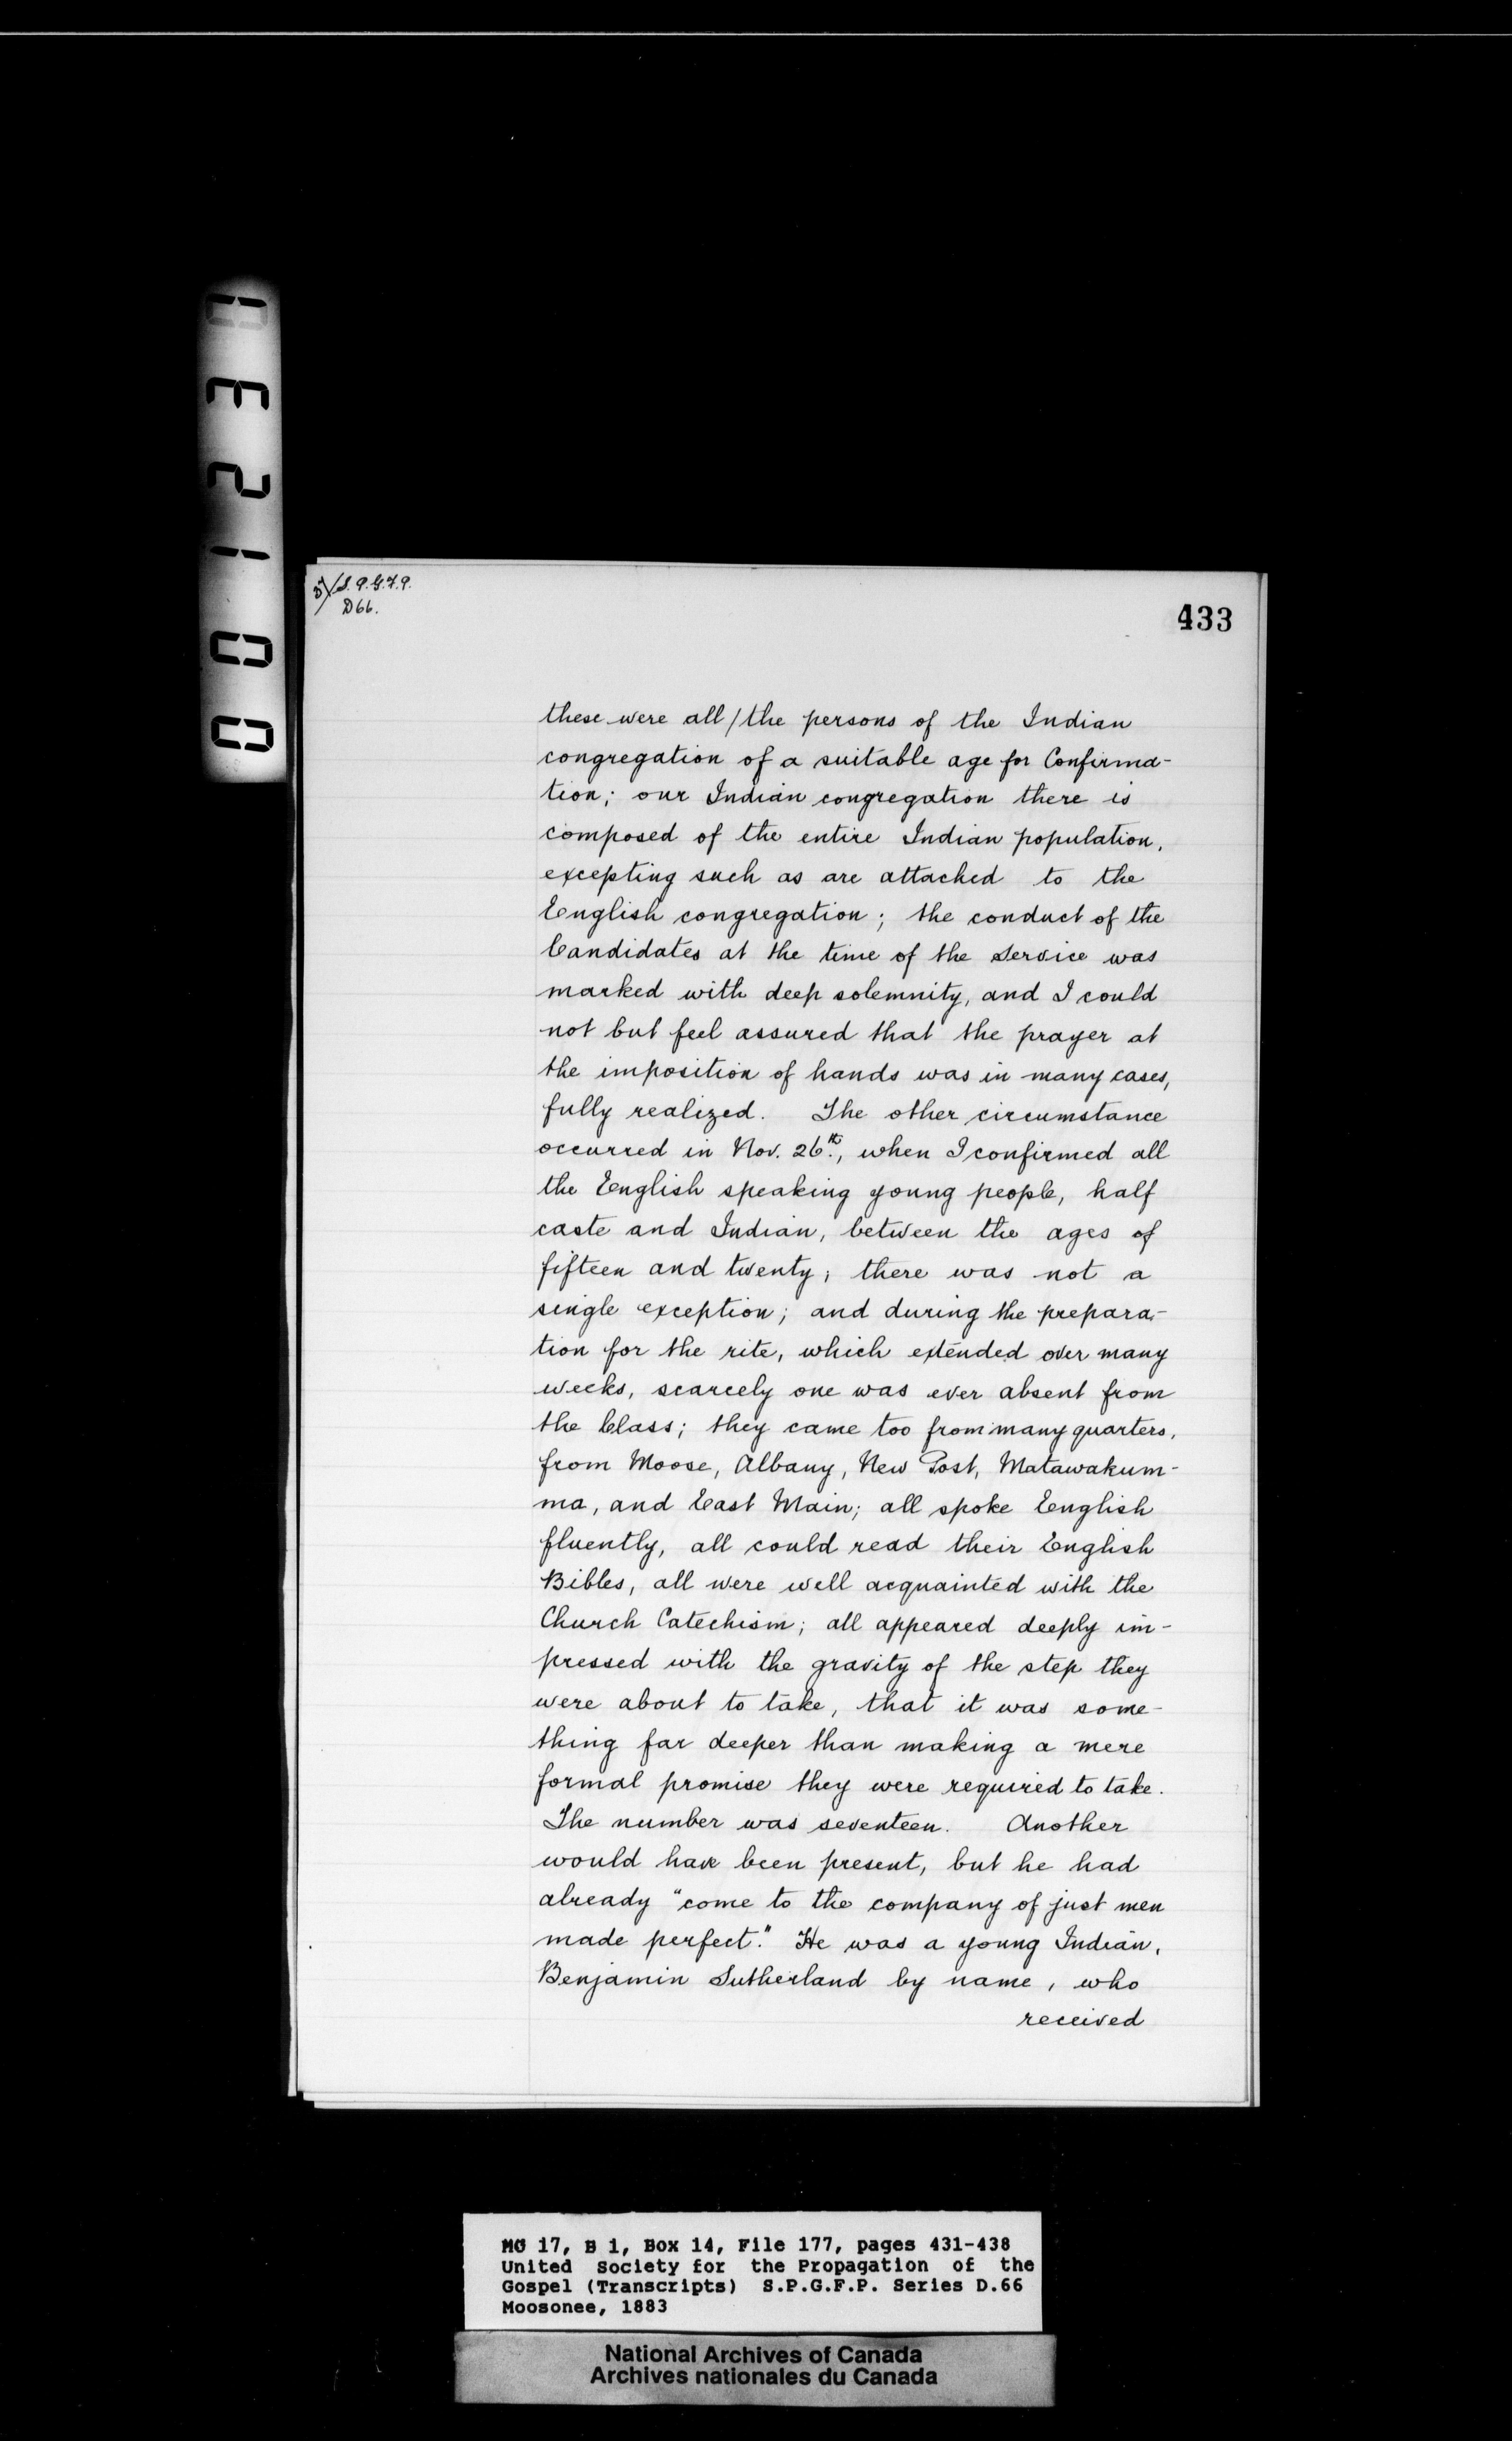 S.P.G.F.P.
D66.
433
these were all/the persons of the Indian
congregation of a suitable age for Confirma-
tion; our Indian congregation there is
composed of the entire Indian population,
excepting such as are attached to the
English congregation; the conduct of the
Candidates at the time of the Service was
marked with deep solemnity, and I could
not but feel assured that the prayer at
the imposition of hands was in many cases,
fully realized. The other circumstance
occurred in Nov. 26th., when I confirmed all
the English speaking young people, half
caste and Indian, between the ages of
fifteen and twenty; there was not a
single exception; and during the prepara-
tion for the rite, which extended over many
weeks, scarcely one was ever absent from
the Class; they came too from many quarters,
from Moose, Albany, New Post, Matawakum-
ma, and East Main; all spoke English
fluently, all could read their English
Bibles, all were well acquainted with the
Church Catechism; all appeared deeply im-
pressed with the gravity of the step they
were about to take, that it was some-
thing far deeper than making a mere
formal promise they were required to take.
The number was seventeen. Another
would have been present, but he had
already "come to the company of just men
made perfect." He was a young Indian,
Benjamin Sutherland by name, who
received
MG 17, B 1, Box 14, File 177, pages 431-438
United Society for the Propagation of the
Gospel (Transcripts) S.P.G.F.P. Series D.66
Moosonee, 1883
National Archives of Canada
Archives nationales du Canada